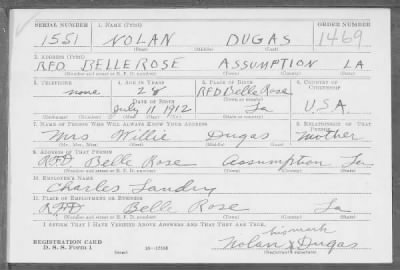 SERIAL NUMBER 1. NAME (Print) ORDER NUMBER
1551 NOLAN DUGAS 1469
(First) (Middle) (Last)
2. ADDRESS (Print)
R.F.D. BELLE ROSE ASSUMPTION LA
(Number and street or R. F. D. number) (Town) (County) (State)
3. TELEPHONE 4. AGE IN YEARS 5. PLACE OF BIRTH 6. COUNTRY OF CITIZENSHIP
none 28 RFD Belle Rose
DATE OF BIRTH
July 11 1912 La U.S.A.
(Mo.) (Day) (Yr.) (State or country)
7. NAME OF PERSON WHO WILL ALWAYS KNOW YOUR ADDRESS 8. RELATIONSHIP OF THAT PERSON
Mrs Willie Dugas Mother
(Mr., Mrs., Miss) (First) (Middle) (Last)
9. ADDRESS OF THAT PERSON
RFD Belle Rose Assumption La
(Number and street or R. F. D. number) (Town) (County) (State)
10. EMPLOYER'S NAME
Charles Landry
11. PLACE OF EMPLOYMENT OR BUSINESS
RFD Belle Rose La
(Number and street or R. F. D. number) (Town) (County) (State)
I AFFIRM THAT I HAVE VERIFIED ABOVE ANSWERS AND THAT THEY ARE TRUE.
his mark
REGISTRATION CARD Nolan X Dugas
D. S. S. Form 1